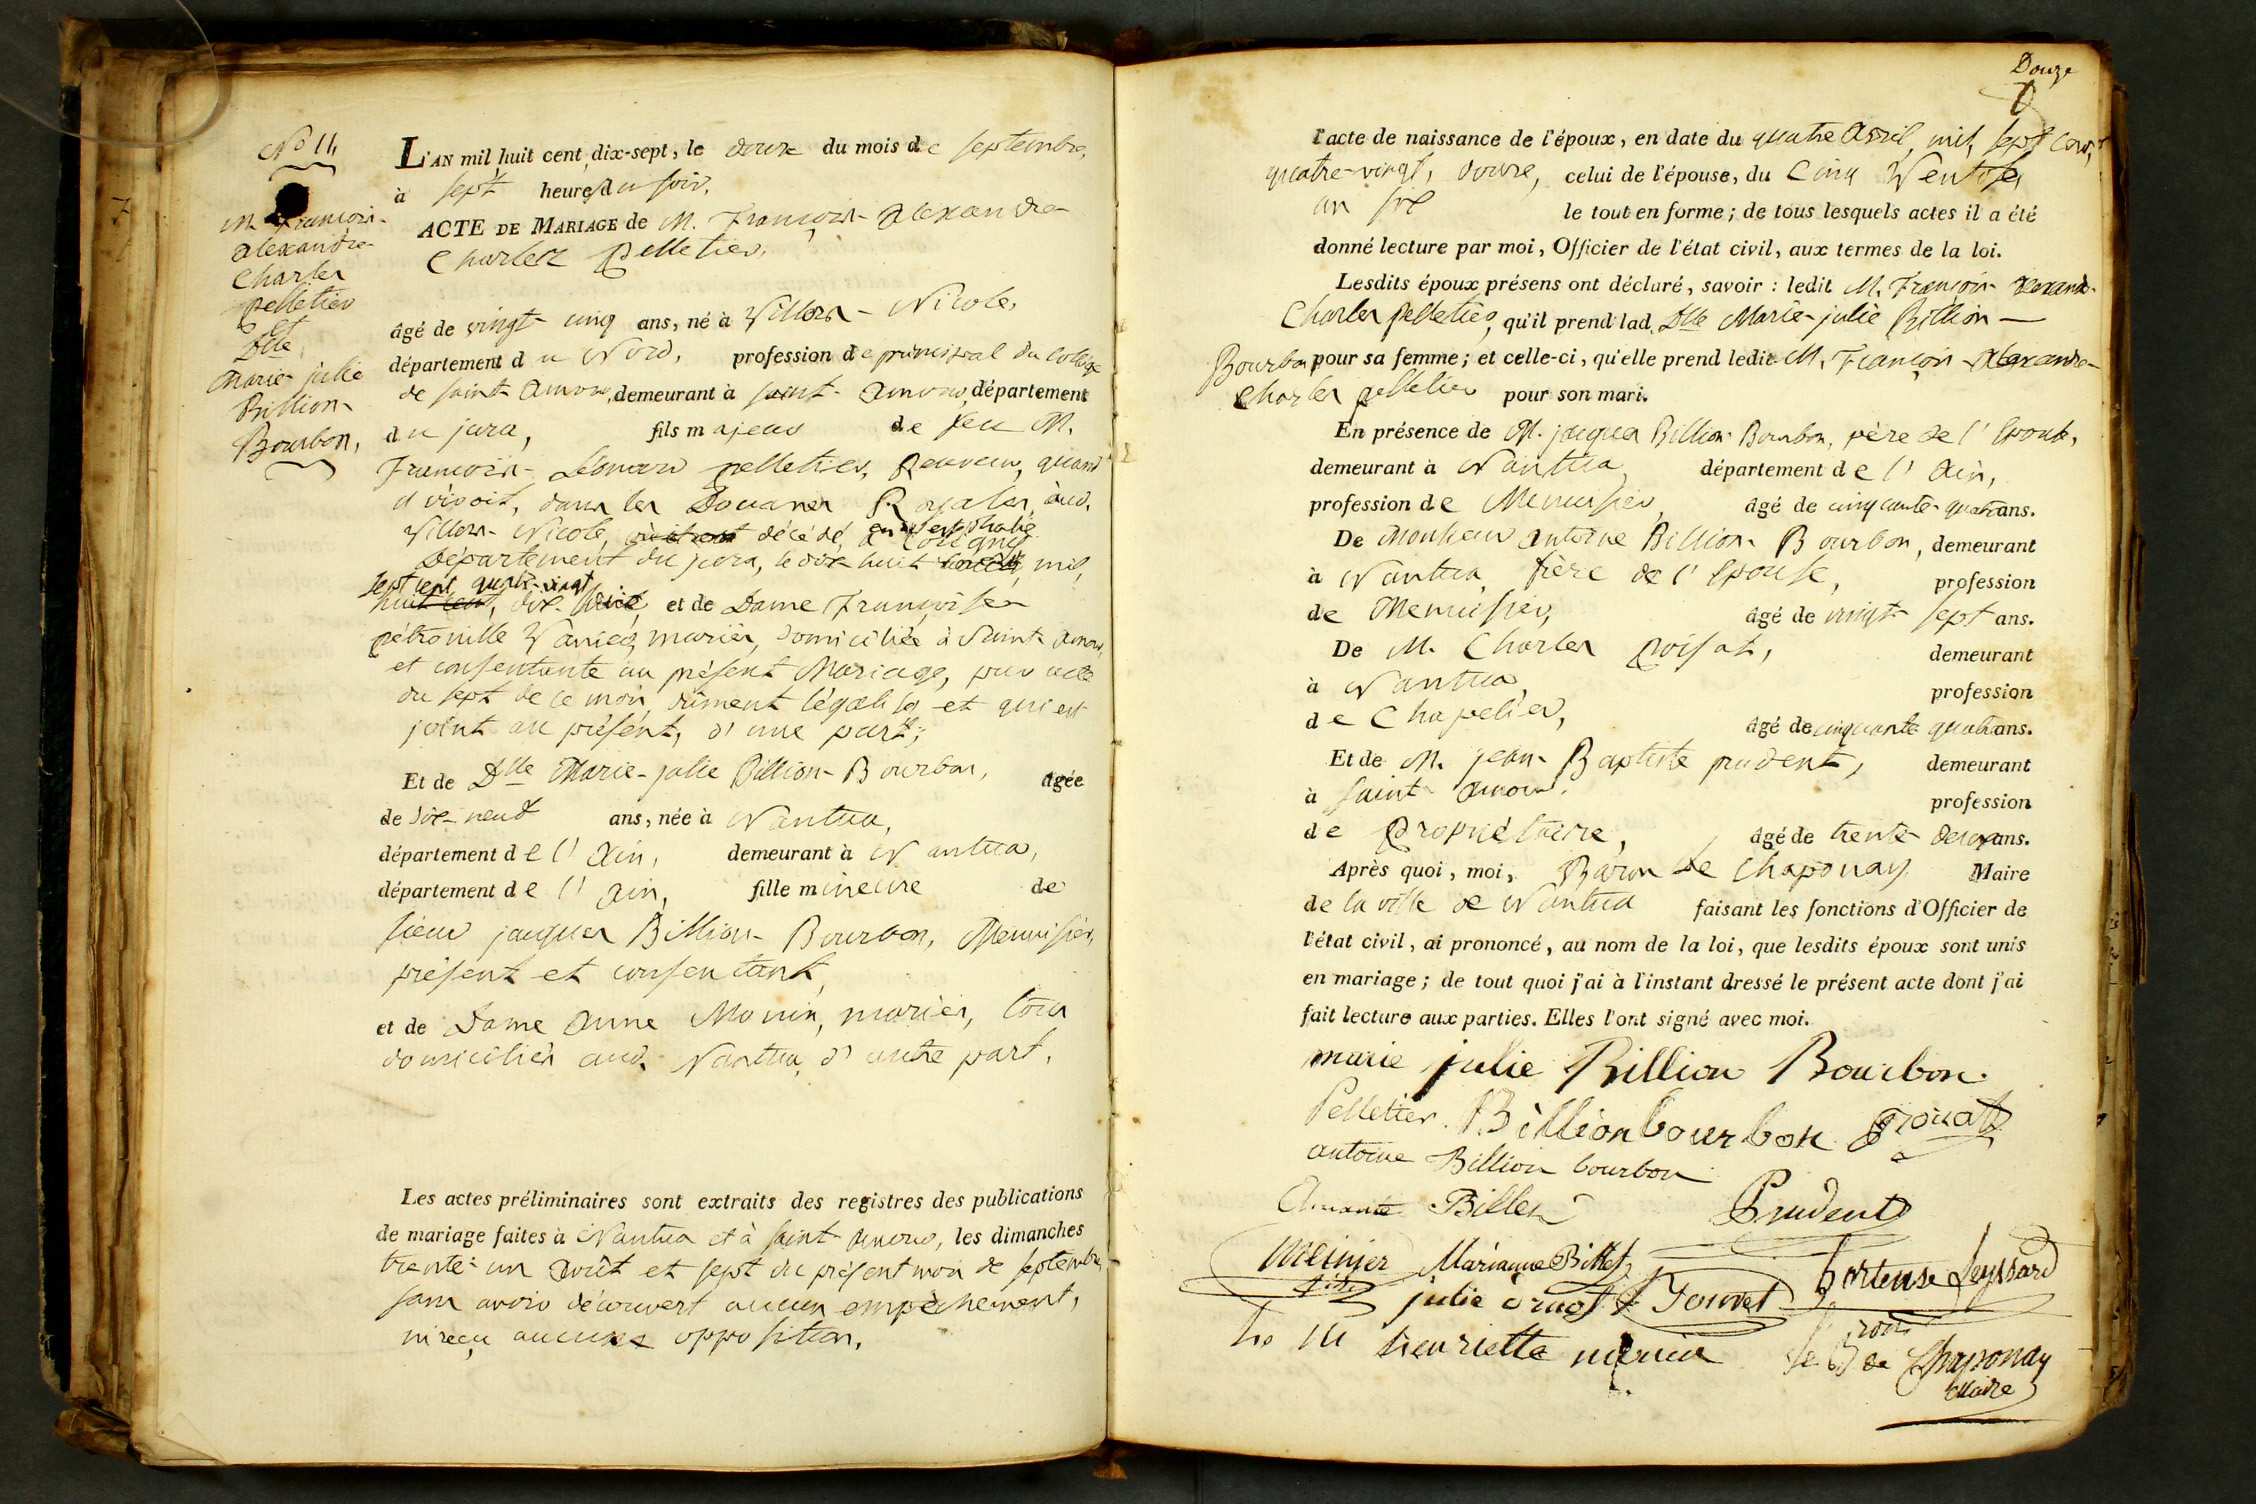 No 11,
M. François-
alexandre-
Charles
pelletier
et
Dlle
Marie-julie
Billion-
Bourbon,
L'AN mil huit cent dix-sept, le douze du mois de septembre,
à sept heures du soir.
ACTE DE MARIAGE de M. François-alexandre-
Charles pelletier,
âgé de vingt-cinq ans, né à Villers-Nicole,
département du Nord, profession de principal du collège
de saint-amour, demeurant à saint-amour, département
du jura, fils majeur de feu M.
François-Léonard pelletier, Receveur, quand
il vivoit, dans les Douanes Royales, aud.
Villers-Nicole, décédé, à Coligny
Département du jura, le dix-huit mil,
sept cent quatre-vingt
huit cent, dix- et de Dame Françoise-
pétronille mariés, domiciliée à Saint-Amour
et consentante au présent Mariage, par acte
du sept de ce mois, dûment légalisé et qui est
joint au présent, d'une part;
Et de Dlle Marie-julie Billion-Bourbon, âgée
de dix-neuf ans, née à Nantua,
département de l'ain, demeurant à Nantua,
département de l'ain, fille mineure de
sieur jacques Billion-Bourbon, Menuisier,
présent et consentant,
et de Dame anne Monin, mariés, tous
domiciliés aud. Nantua, d'autre part.
Les actes préliminaires sont extraits des registres des publications
de mariage faites à Nantua et à saint-amour, les dimanches
trente-un août et sept du présent mois de septembre,
sans avoir découvert aucun empêchement,
ni reçu aucune opposition.
Douze
l'acte de naissance de l'époux, en date du quatre avril, mil, sept cent,
quatre-vingt, douze, celui de l'épouse, du cinq Ventose,
an six le tout en forme; de tous lesquels actes il a été
donné lecture par moi, Officier de l'état civil, aux termes de la loi.
Lesdits époux présens ont déclaré, savoir : ledit M. François-alexandre-
Charles pelletier, qu'il prend lad. Dlle Marie-julie Billion-
Bourbon pour sa femme; et celle-ci, qu'elle prend ledit M. François-Alexandre-
Charles pelletier pour son mari.
En présence de M. jacques Billion-Bourbon, père de l'épouse,
demeurant à Nantua, département de l'ain,
profession de Menuisier, âgé de cinquante-quatre ans.
De Monsieur antoine Billion-Bourbon, demeurant
à Nantua, frère de l'épouse, profession
de Menuisier, âgé de vingt-sept ans.
De M. Charles poisat, demeurant
à Nantua, profession
de Chapelier, âgé de cinquante-quatre ans.
Et de M. jean-Baptiste prudent, demeurant
à saint-amour, profession
de propriétaire, âgé de trente-deux ans.
Après quoi, moi, Baron de Chaponay, Maire
de la ville de Nantua faisant les fonctions d'Officier de
l'état civil, ai prononcé, au nom de la loi, que lesdits époux sont unis
en mariage; de tout quoi j'ai à l'instant dressé le présent acte dont j'ai
fait lecture aux parties. Elles l'ont signé avec moi.
marie julie Billion Bourbon.
Pelletier. Billionbourbon
antoine Billion bourbon
Prudent
Marianne Billet hortense Leyssard
julie
henriette
de Chaponay
Maire